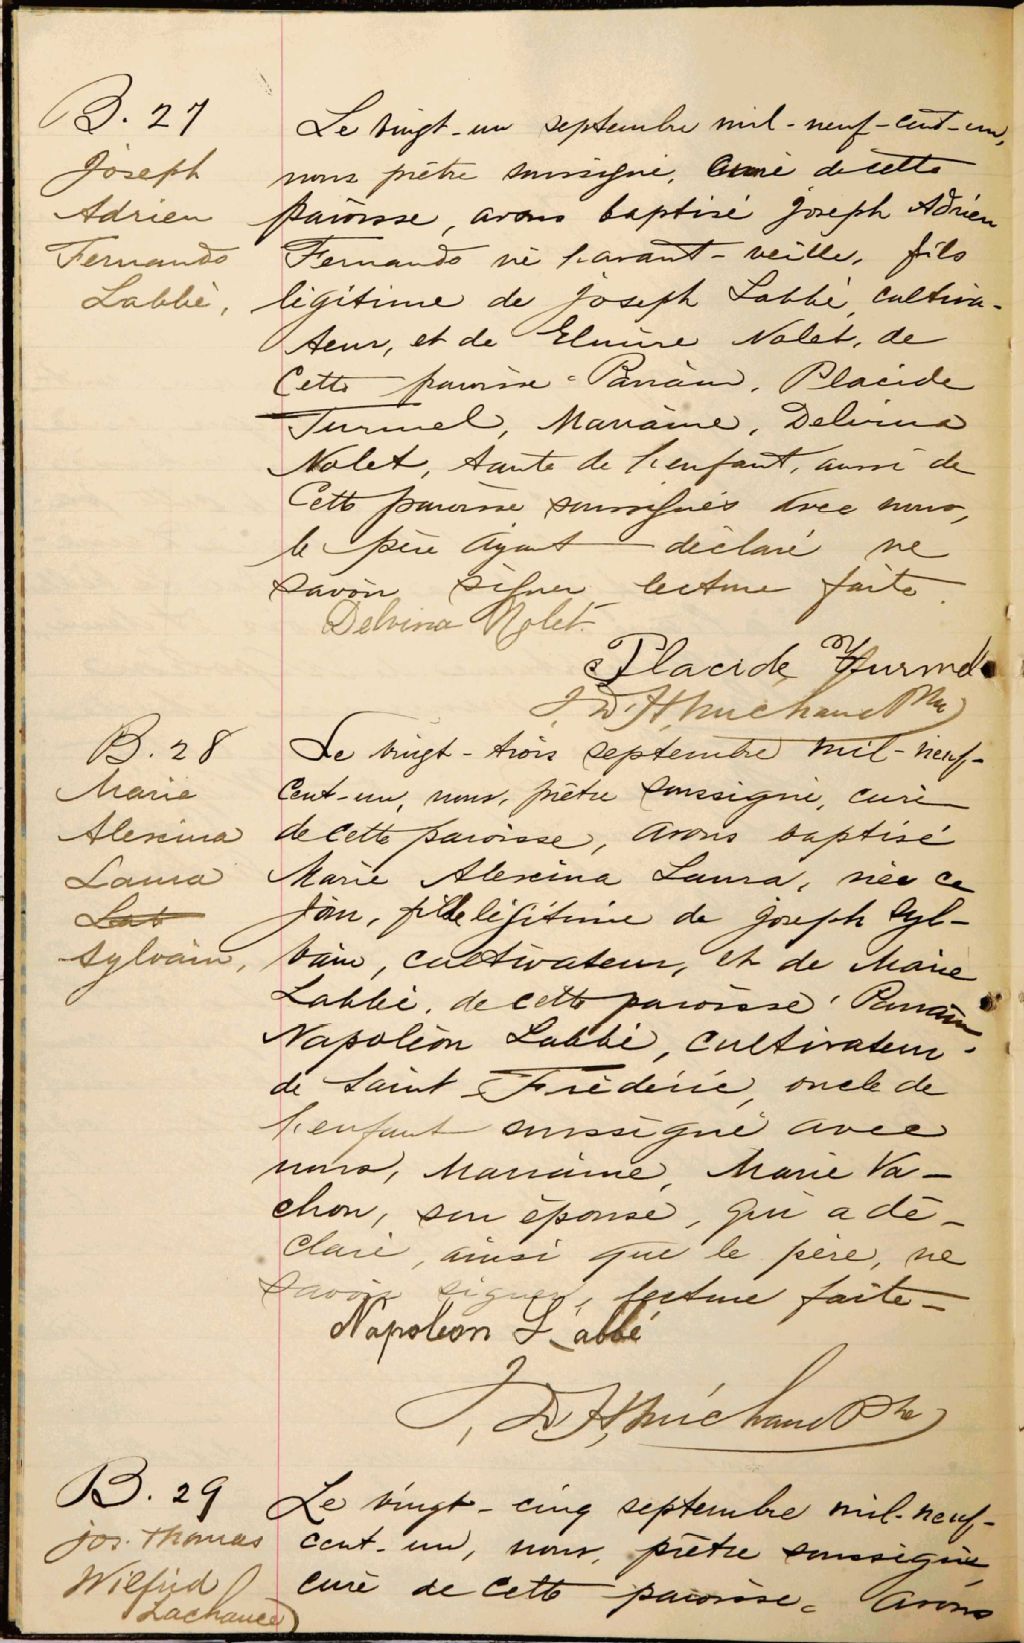 B. 27
Joseph
Adrien
Fernando
Labbé,
Le vingt-un septembre mil-neuf-cent-un,
nous prêtre soussigné, curé de cette
paroisse, avons baptisé Joseph Adrien
Fernando né l'avant-veille, fils
légitime de Joseph Labbé, cultiva-
teur, et de Elmire Nolet, de
cette paroisse. Parrain, Placide
Turmel, Marraine, Delvina
Nolet, tante de l'enfant, aussi de
cette paroisse soussignés avec nous,
le père ayant déclaré ne
savoir signer lecture faite.
Delvina Nolet
Placide Turmel
J. D. A. Michaud Ptre
B. 28
Marie
Alexina
Laura
Lab
Sylvain,
Le vingt-trois septembre mil-neuf-
cent-un, nous, prêtre soussigné, curé
de cette paroisse, avons baptisé
Marie Alexina Laura, née ce
jour, fille légitime de Joseph Syl-
vain, cultivateur, et de Marie
Labbé, de cette paroisse. Parrain
Napoléon Labbé, cultivateur
de Saint Frédéric, oncle de
l'enfant soussigné avec
nous, Marraine, Marie Va-
chon, son épouse, qui a dé-
claré, ainsi que le père, ne
savoir signer, lecture faite-
Napoléon L'abbé
J. D. A. Michaud Ptre
B. 29
Jos. Thomas
Wilfrid
Lachance
Le vingt-cinq septembre mil-neuf-
cent-un, nous, prêtre soussigné,
curé de cette paroisse, avons